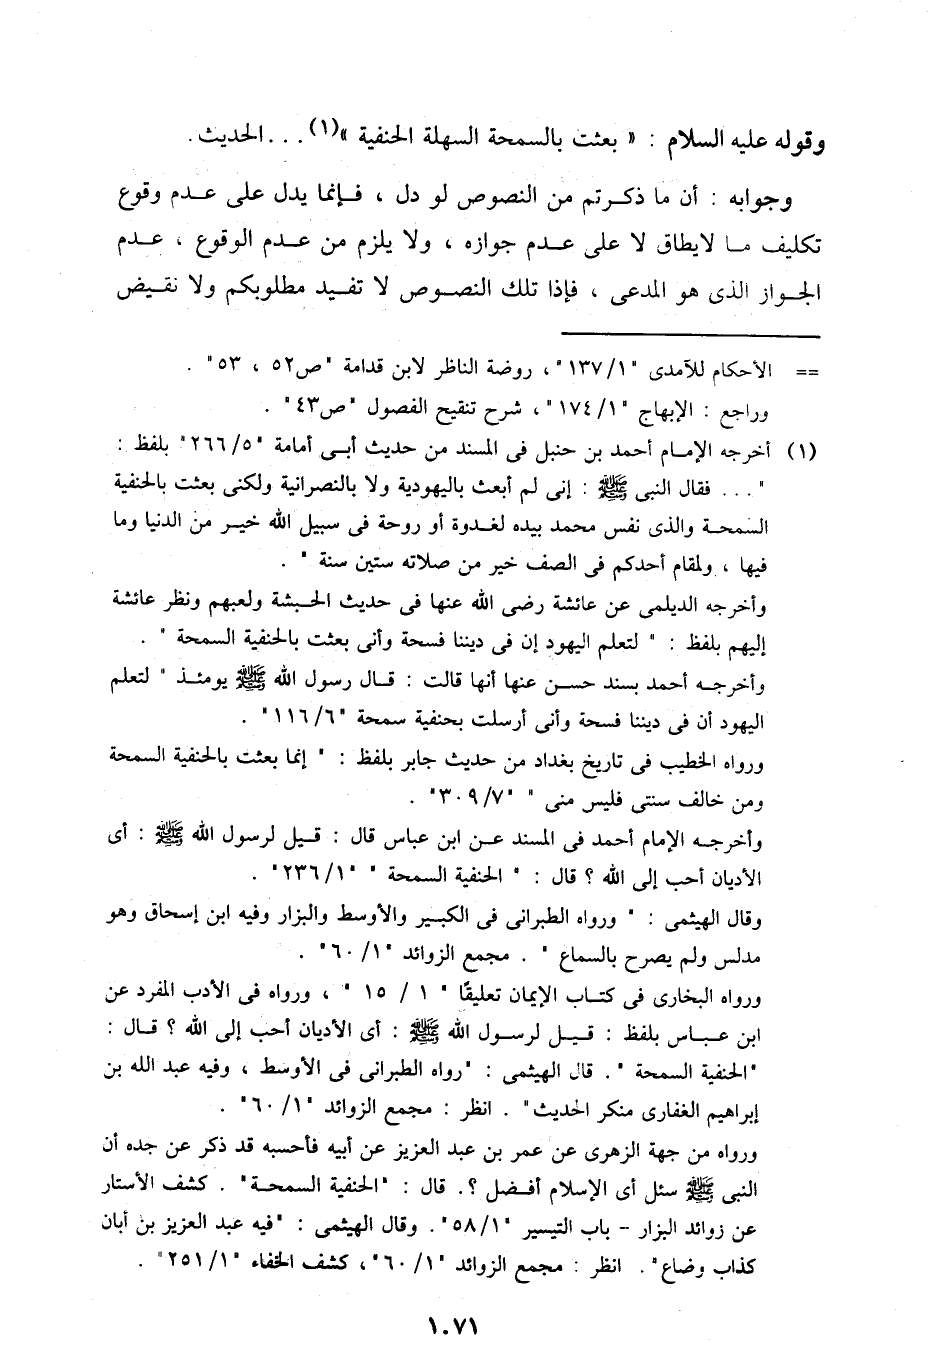 وقوله عليه السلام : « بعثت بالسمحة السهلة الحنفية »(١) . . . الحديث .
وجوابه : أن ما ذكرتم من النصوص لو دل ، فإنما يدل على عدم وقوع
تكليف ما لايطاق لا على عدم جوازه ، ولا يلزم من عدم الوقوع ، عدم
الجواز الذى هو المدعى ، فإذا تلك النصوص لا تفيد مطلوبكم ولا نقيض
== الأحكام للآمدى "١٣٧/١" ، روضة الناظر لابن قدامة "ص٥٢ ، ٥٣" .
وراجع : الإبهاج "١٧٤/١" ، شرح تنقيح الفصول "ص٤٣" .
(١) أخرجه الإمام أحمد بن حنبل فى المسند من حديث أبى أمامة "٢٦٦/٥" بلفظ :
" . . . فقال النبى ﷺ : إنى لم أبعث باليهودية ولا بالنصرانية ولكنى بعثت بالحنفية
السمحة والذى نفس محمد بيده لغدوة أو روحة فى سبيل الله خير من الدنيا وما
فيها ، ولمقام أحدكم فى الصف خير من صلاته ستين سنة " .
وأخرجه الديلمى عن عائشة رضى الله عنها فى حديث الحبشة ولعبهم ونظر عائشة
إليهم بلفظ : " لتعلم اليهود إن فى ديننا فسحة وأنى بعثت بالحنفية السمحة " .
وأخرجه أحمد بسند حسن عنها أنها قالت : قال رسول الله ﷺ يومئذ " لتعلم
اليهود أن فى ديننا فسحة وأنى أرسلت بحنفية سمحة "١١٦/٦" .
ورواه الخطيب فى تاريخ بغداد من حديث جابر بلفظ : " إنما بعثت بالحنفية السمحة
ومن خالف سنتى فليس منى " "٣٠٩/٧" .
وأخرجه الإمام أحمد فى المسند عن ابن عباس قال : قيل لرسول الله ﷺ : أى
الأديان أحب إلى الله ؟ قال : " الحنفية السمحة " "٢٣٦/١" .
وقال الهيثمى : " ورواه الطبرانى فى الكبير والأوسط والبزار وفيه ابن إسحاق وهو
مدلس ولم يصرح بالسماع " . مجمع الزوائد "٦٠/١" .
ورواه البخارى فى كتاب الإيمان تعليقًا " ١ / ١٥ " ، ورواه فى الأدب المفرد عن
ابن عباس بلفظ : قيل لرسول الله ﷺ : أى الأديان أحب إلى الله ؟ قال :
"الحنفية السمحة " . قال الهيثمى : "رواه الطبرانى فى الأوسط ، وفيه عبد الله بن
إبراهيم الغفارى منكر الحديث" . انظر : مجمع الزوائد "٦٠/١" .
ورواه من جهة الزهرى عن عمر بن عبد العزيز عن أبيه فأحسبه قد ذكر عن جده أن
النبى ﷺ سئل أى الإسلام أفضل ؟. قال : "الحنفية السمحة" . كشف الأستار
عن زوائد البزار – باب التيسير "٥٨/١" . وقال الهيثمى : "فيه عبد العزيز بن أبان
كذاب وضاع" . انظر : مجمع الزوائد "٦٠/١" ، كشف الخفاء "٢٥١/١" .
١٠٧١